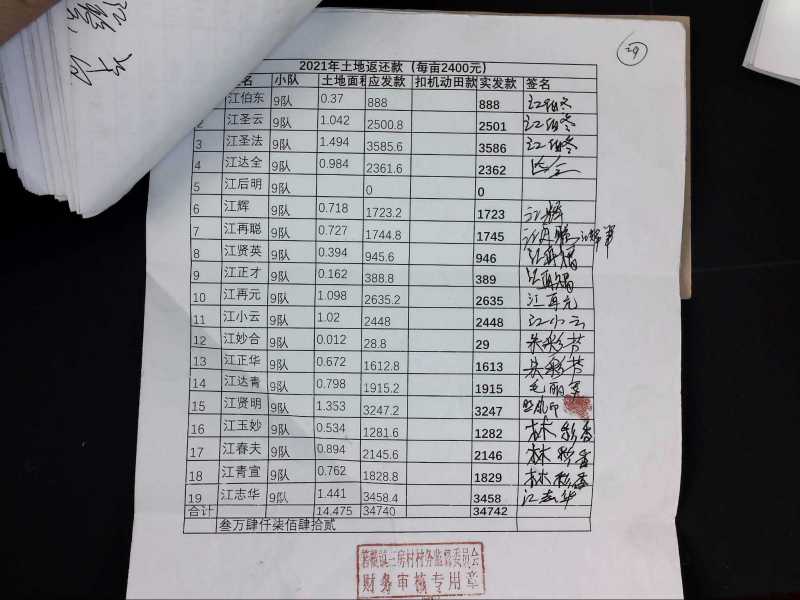 2021年土地返还款（每亩2400元）
名 小队 土地面积 应发款 扣机动田款 实发款 签名
江伯东 9队 0.37 888 888 江伯冬
2 江圣云 9队 1.042 2500.8 2501 江伯冬
3 江圣法 9队 1.494 3585.6 3586 江伯冬
4 江达全 9队 0.984 2361.6 2362
5 江后明 9队 0 0
6 江辉 9队 0.718 1723.2 1723 江辉
7 江再聪 9队 0.727 1744.8 1745 江再聪
8 江贤英 9队 0.394 945.6 946
9 江正才 9队 0.162 388.8 389
10 江再元 9队 1.098 2635.2 2635 江再元
11 江小云 9队 1.02 2448 2448 江小云
12 江妙合 9队 0.012 28.8 29 朱彩芳
13 江正华 9队 0.672 1612.8 1613 朱彩芳
14 江达青 9队 0.798 1915.2 1915 毛丽军
15 江贤明 9队 1.353 3247.2 3247
16 江玉妙 9队 0.534 1281.6 1282 林彩香
17 江春夫 9队 0.894 2145.6 2146 林彩香
18 江青宣 9队 0.762 1828.8 1829 林彩香
19 江志华 9队 1.441 3458.4 3458 江志华
合计 14.475 34740 34742
叁万肆仟柒佰肆拾贰
箬横镇三房村村务监督委员会
财务审核专用章